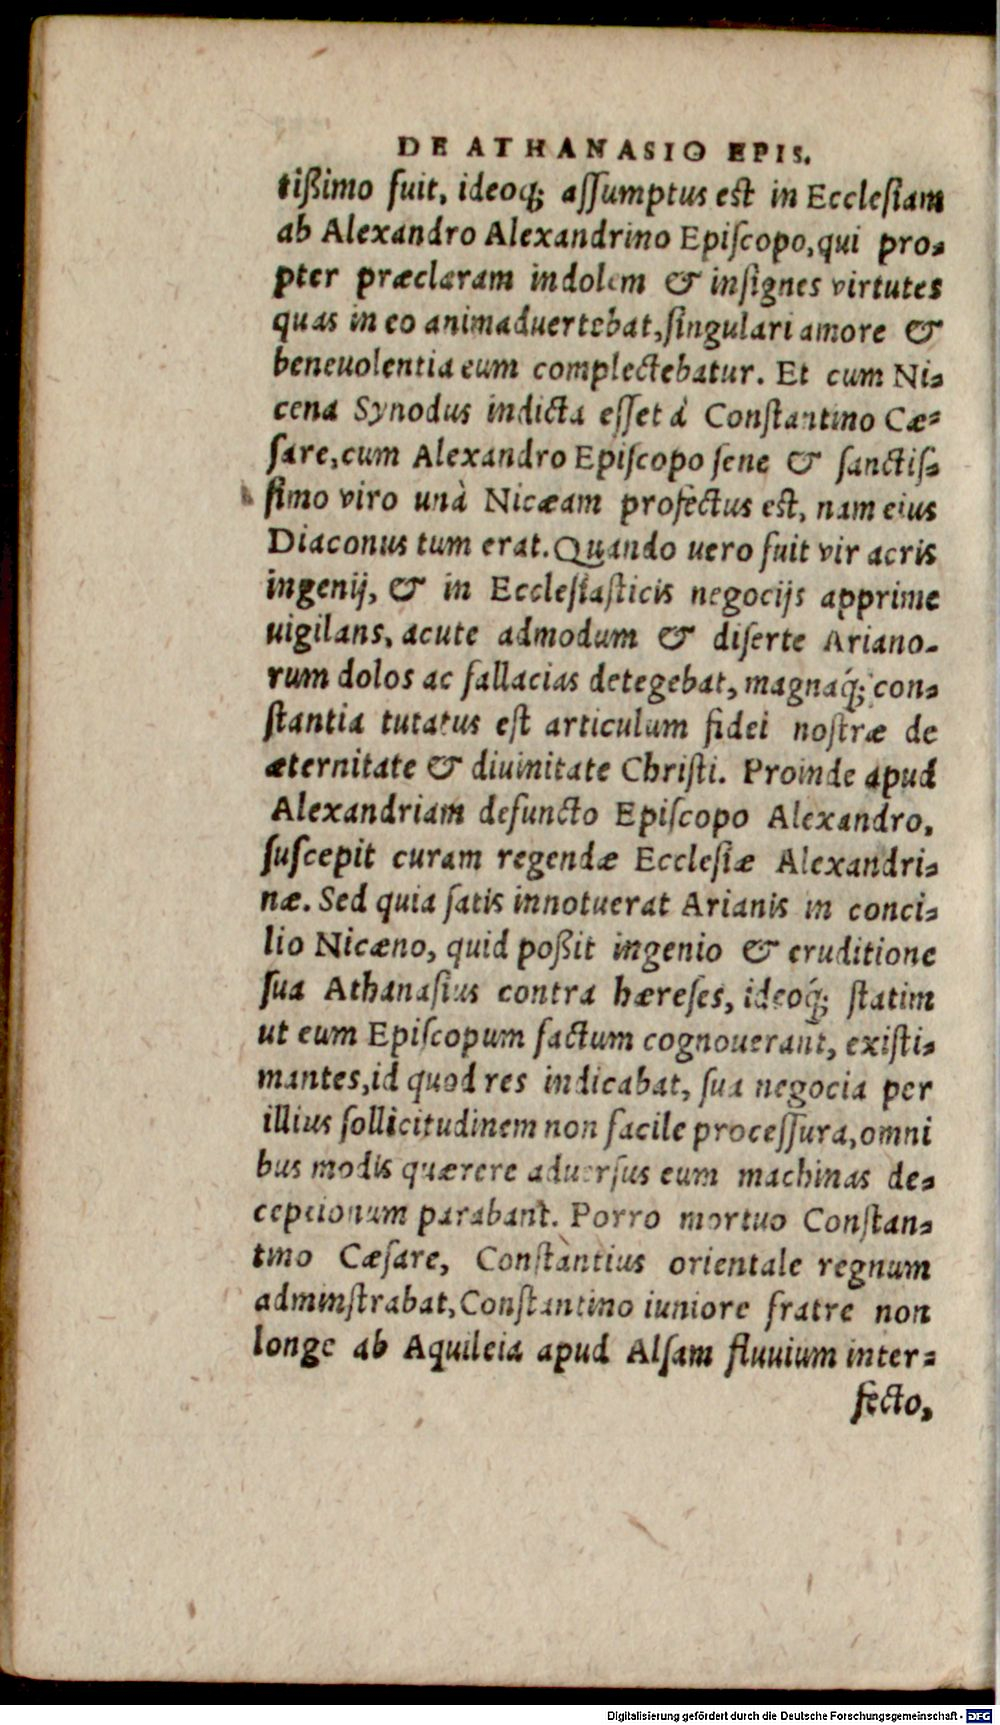 DE ATHANASIO EPIS.
tißimo fuit, ideoq́; aſſumptus est in Eccleſiam
ab Alexandro Alexandrino Epiſcopo, qui pro-
pter præclaram indolem & inſignes virtutes
quas in eo animaduertebat, ſingulari amore &
beneuolentia eum complectebatur. Et cum Ni-
cena Synodus indicta eſſet à Conſtantino Cæ-
ſare, cum Alexandro Epiſcopo ſene & ſanctiſ-
ſimo viro unà Nicæam profectus est, nam eius
Diaconus tum erat. Quando uero fuit vir acris
ingenij, & in Eccleſiaſticis negocijs apprime
uigilans, acute admodum & diſerte Ariano-
rum dolos ac fallacias detegebat, magnaq́; con-
ſtantia tutatus eſt articulum fidei noſtræ de
æternitate & diuinitate Chriſti. Proinde apud
Alexandriam defuncto Epiſcopo Alexandro,
ſuſcepit curam regendæ Eccleſiæ Alexandri-
næ. Sed quia ſatis innotuerat Arianis in conci-
lio Nicæno, quid poßit ingenio & eruditione
ſua Athanaſius contra hæreſes, ideoq́; ſtatim
ut eum Epiſcopum factum cognouerant, exiſti-
mantes, id quod res indicabat, ſua negocia per
illius ſollicitudinem non facile proceſſura, omni
bus modis quærere aduerſus eum machinas de-
ceptionum parabant. Porro mortuo Conſtan-
tino Cæſare, Conſtantius orientale regnum
adminſtrabat, Conſtantino iuniore fratre non
longe ab Aquileia apud Alſam fluuium inter-
fecto,
Digitalisierung gefördert durch die Deutsche Forschungsgemeinschaft - DFG